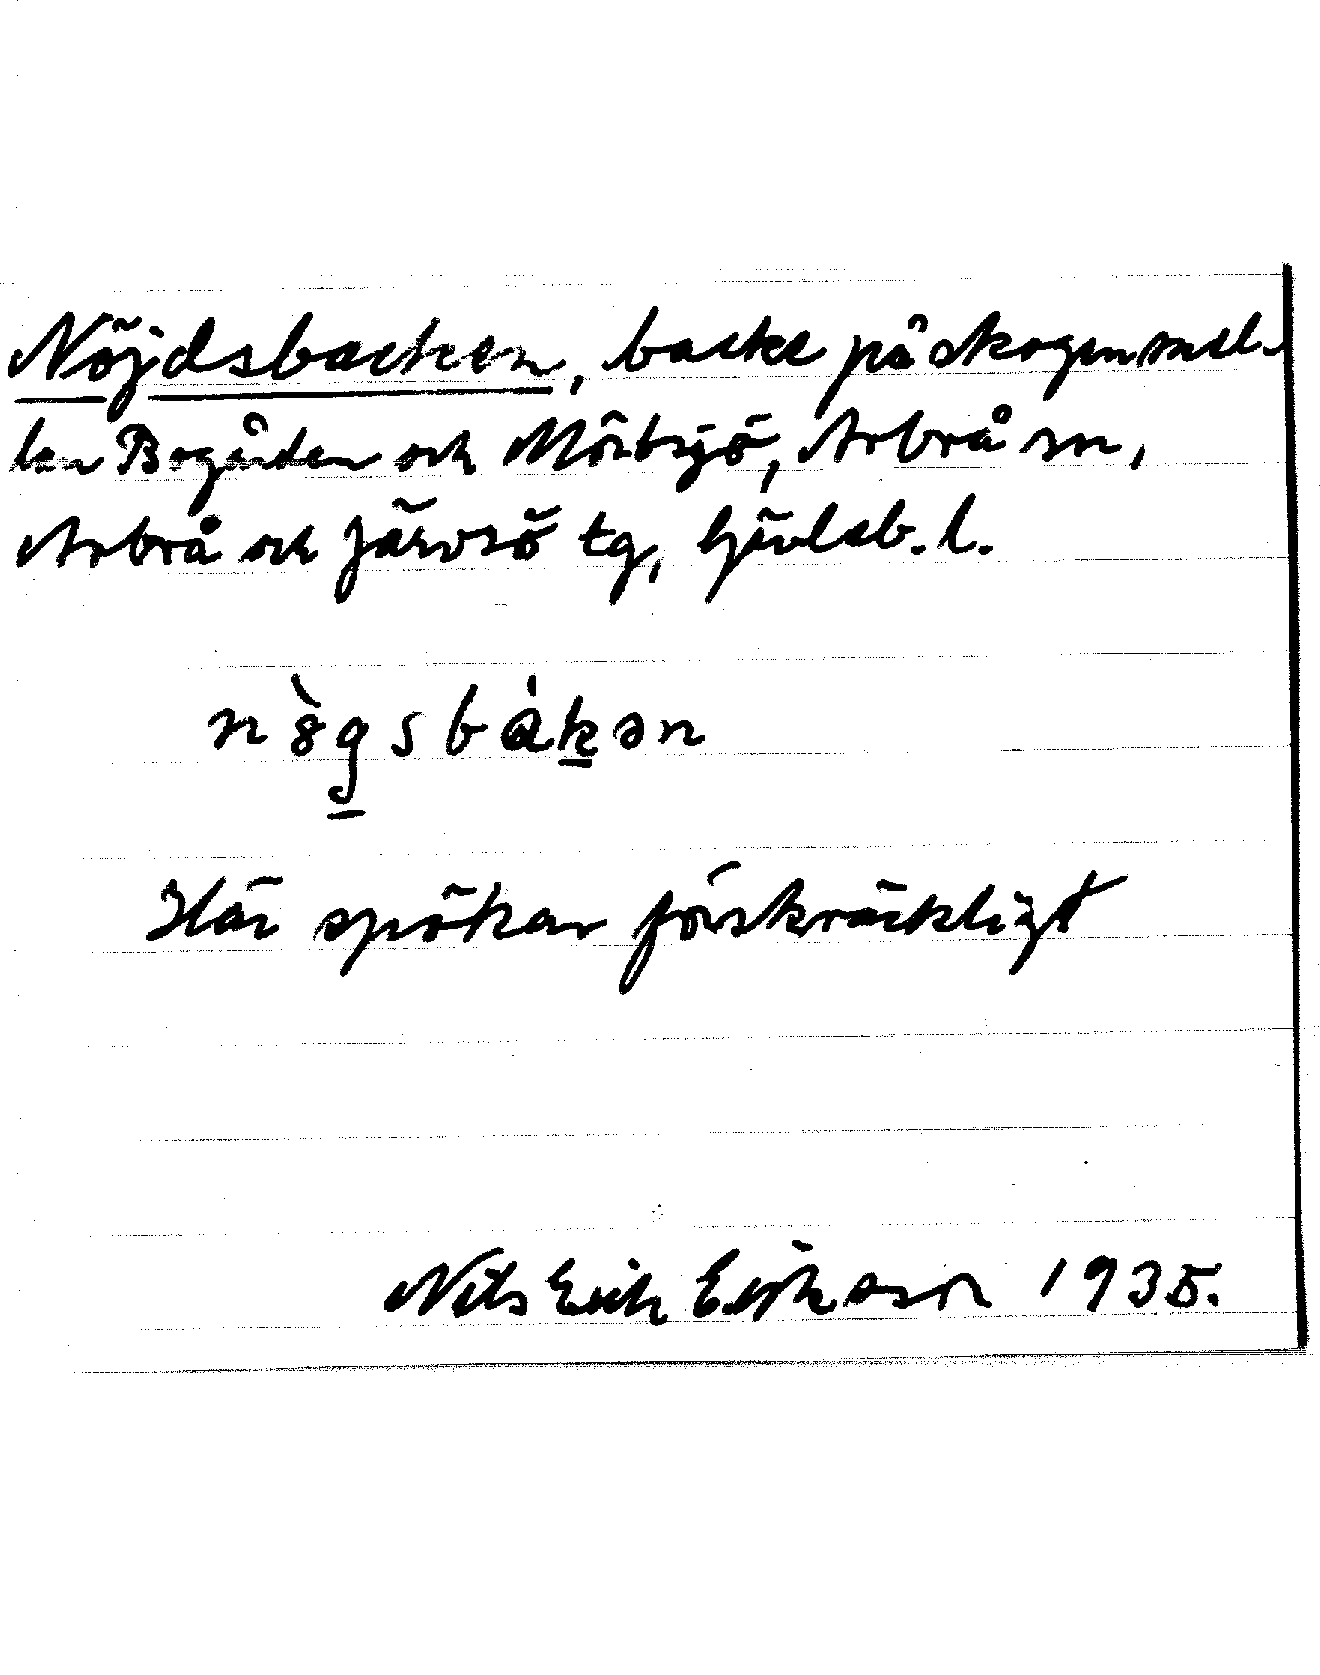 Nöjdsbacken, backe på skogen mel-
lan Bogården och Mörtsjö, Arbrå sn,
Arbrå och Järvsö tg, Gävleb. l.
nògsbákən
Här spökar förskräckligt
Nils Erik Eriksson 1935.